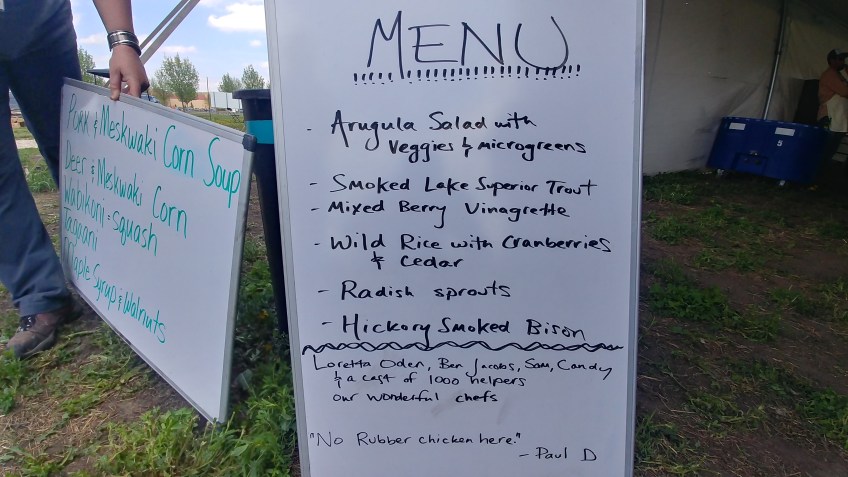 Pork & Meskwaki Corn Soup
Deer & Meskwaki Corn
Wabikoni = squash
Tagwani
Maple Syrup & Walnuts
MENU
- Arugula Salad with
Veggies & microgreens
- Smoked Lake Superior Trout
- Mixed Berry Vinagrette
- Wild Rice with Cranberries
& Cedar
- Radish sprouts
- Hickory Smoked Bison
Loretta Oden, Ben Jacobs, Sam, Candy
& a cast of 1000 helpers
our wonderful chefs
"No Rubber chicken here."
- Paul D